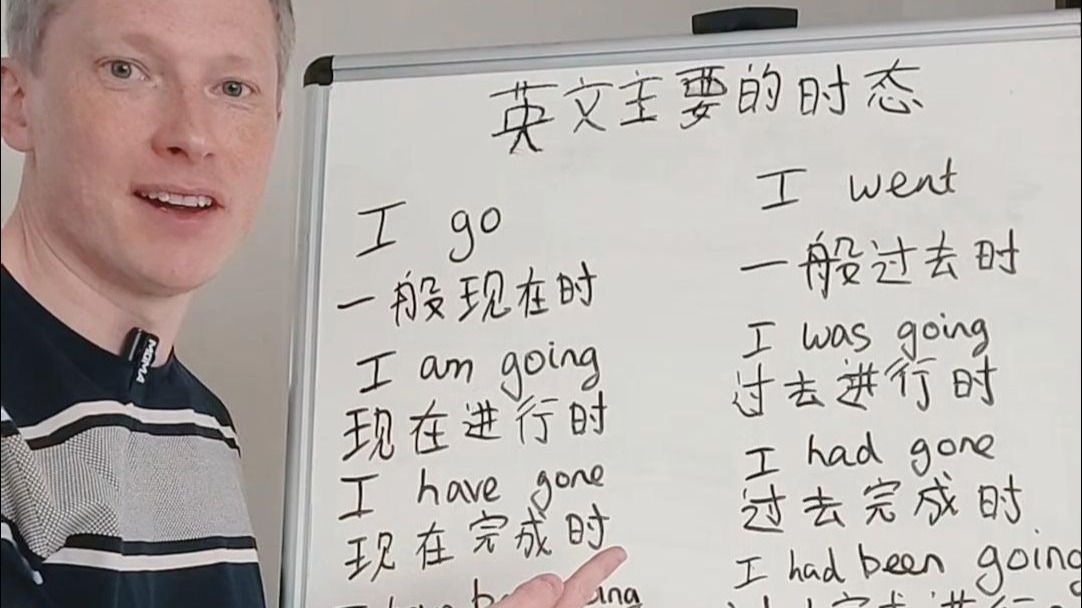 英文主要的时态
I go
一般现在时
I am going
现在进行时
I have gone
现在完成时
I went
一般过去时
I was going
过去进行时
I had gone
过去完成时
I had been going
MOMA